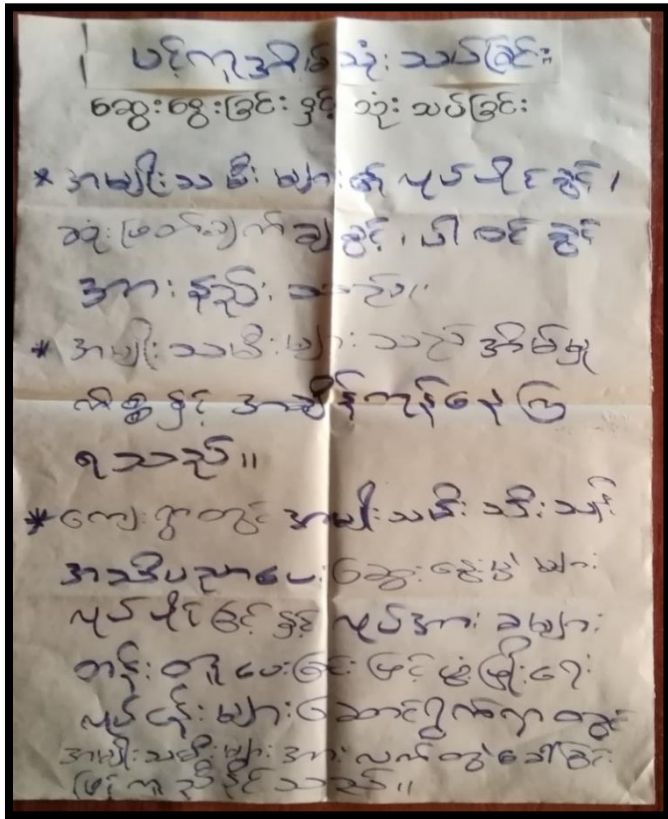 ပင့်ကူအိမ်သုံးသပ်ခြင်း
ဆွေးနွေးခြင်းနှင့် သုံးသပ်ခြင်း
* အမျိုးသမီးများ၏ လုပ်ပိုင်ခွင့်၊
ဆုံးဖြတ်ချက်ချခွင့်၊ ပါဝင်ခွင့်
အားနည်းသည်။
* အမျိုးသမီးများသည် အိမ်မှု
ကိစ္စနှင့် အချိန်ကုန်နေကြ
ရသည်။
* ကျေးရွာတွင် အမျိုးသမီး သီးသန့်
အသိပညာပေး ဆွေးနွေးပွဲများ
လုပ်ပိုင်ခွင့်နှင့် လုပ်အားခများ
တန်းတူပေးခြင်းဖြင့် ဖွံ့ဖြိုးရေး
လုပ်ငန်းများဆောင်ရွက်ရာတွင်
အမျိုးသမီးများအား လက်တွဲခေါ်ခြင်း
ဖြင့် ကူညီနိုင်သည်။